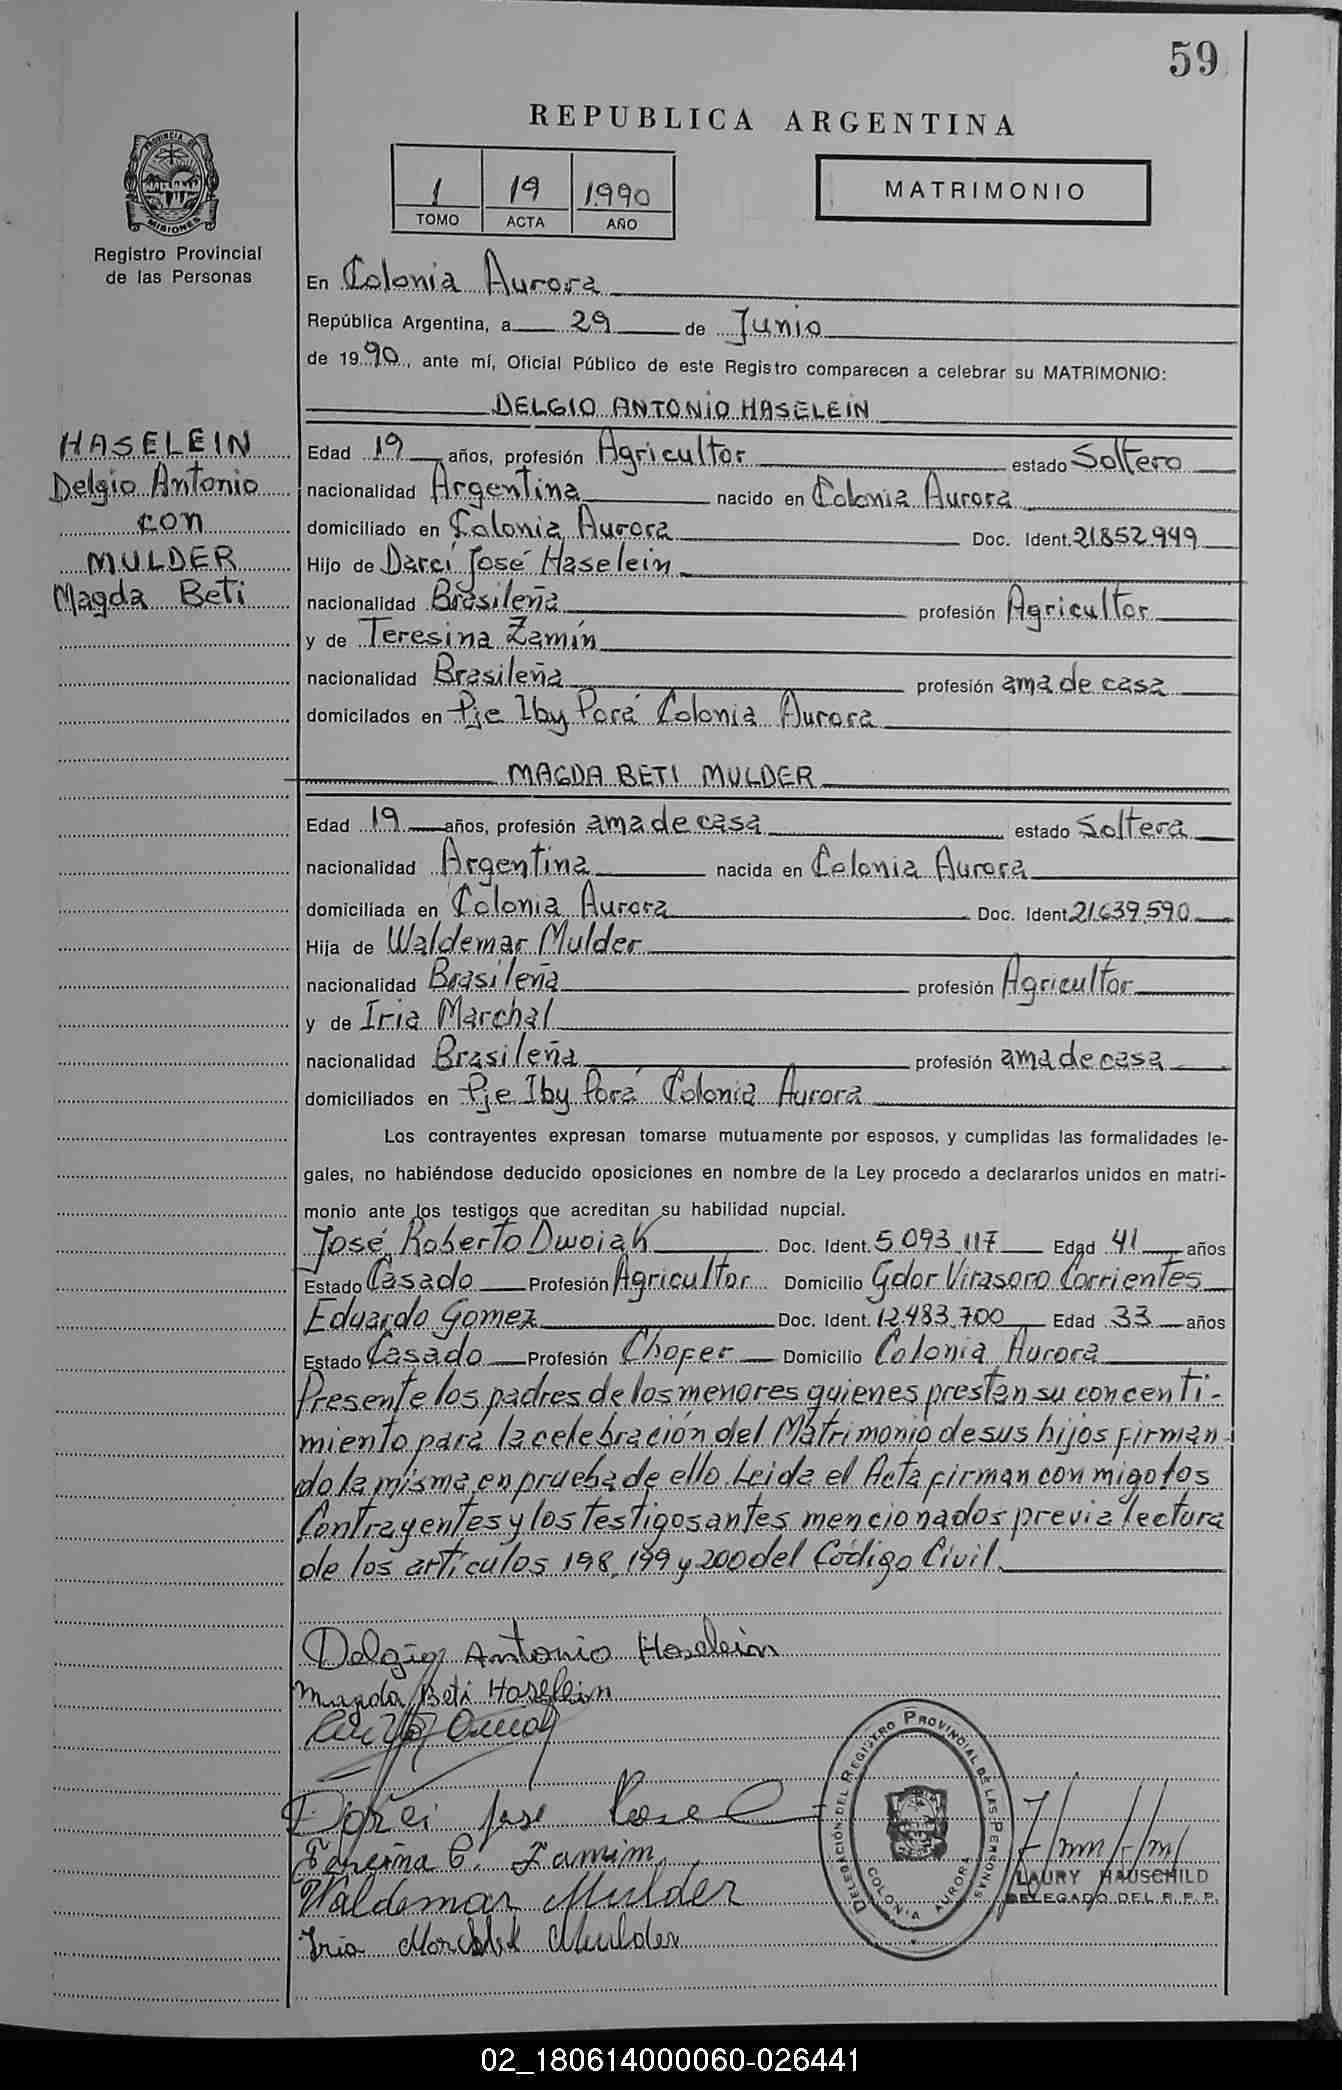 59
REPUBLICA ARGENTINA
PROVINCIA DE MISIONES
Registro Provincial
de las Personas
1 19 1990
TOMO ACTA AÑO
MATRIMONIO
En Colonia Aurora
República Argentina, a 29 de Junio
de 1990, ante mí, Oficial Público de este Registro comparecen a celebrar su MATRIMONIO:
DELGIO ANTONIO HASELEIN
HASELEIN
Delgio Antonio
con
MULDER
Magda Beti
Edad 19 años, profesión Agricultor estado Soltero
nacionalidad Argentina nacido en Colonia Aurora
domiciliado en Colonia Aurora Doc. Ident. 21.852.949
Hijo de Darci José Haselein
nacionalidad Brasileña profesión Agricultor
y de Teresina Zamín
nacionalidad Brasileña profesión ama de casa
domicilados en Pje Iby Porá Colonia Aurora
MAGDA BETI MULDER
Edad 19 años, profesión ama de casa estado Soltera
nacionalidad Argentina nacida en Colonia Aurora
domiciliada en Colonia Aurora Doc. Ident. 21.639.590
Hija de Waldemar Mulder
nacionalidad Brasileña profesión Agricultor
y de Iria Marchal
nacionalidad Brasileña profesión ama de casa
domiciliados en Pje Iby Porá Colonia Aurora
Los contrayentes expresan tomarse mutuamente por esposos, y cumplidas las formalidades le-
gales, no habiéndose deducido oposiciones en nombre de la Ley procedo a declararlos unidos en matri-
monio ante los testigos que acreditan su habilidad nupcial.
José Roberto Dwoiak Doc. Ident. 5.093.117 Edad 41 años
Estado Casado Profesión Agricultor Domicilio Gdor Virasoro Corrientes
Eduardo Gomez Doc. Ident. 12.483.700 Edad 33 años
Estado Casado Profesión Chofer Domicilio Colonia Aurora
Presente los padres de los menores quienes prestan su concenti-
miento para la celebración del Matrimonio de sus hijos firman
do la misma en prueba de ello. Leida el Acta firman con migo los
Contrayentes y los testigos antes mencionados previa lectura
de los artículos 198, 199 y 200 del Código Civil.
Delgio Antonio Haselein
Magda Beti Haselein
Darci Jose
Teresina C. Zamim
Waldemar Mulder
Iria Marchal Mulder
DELEGACIÓN DEL REGISTRO PROVINCIAL DE LAS PERSONAS
COLONIA AURORA
LAURY HAUSCHILD
DELEGADO DEL R.P.P.
02_180614000060-026441